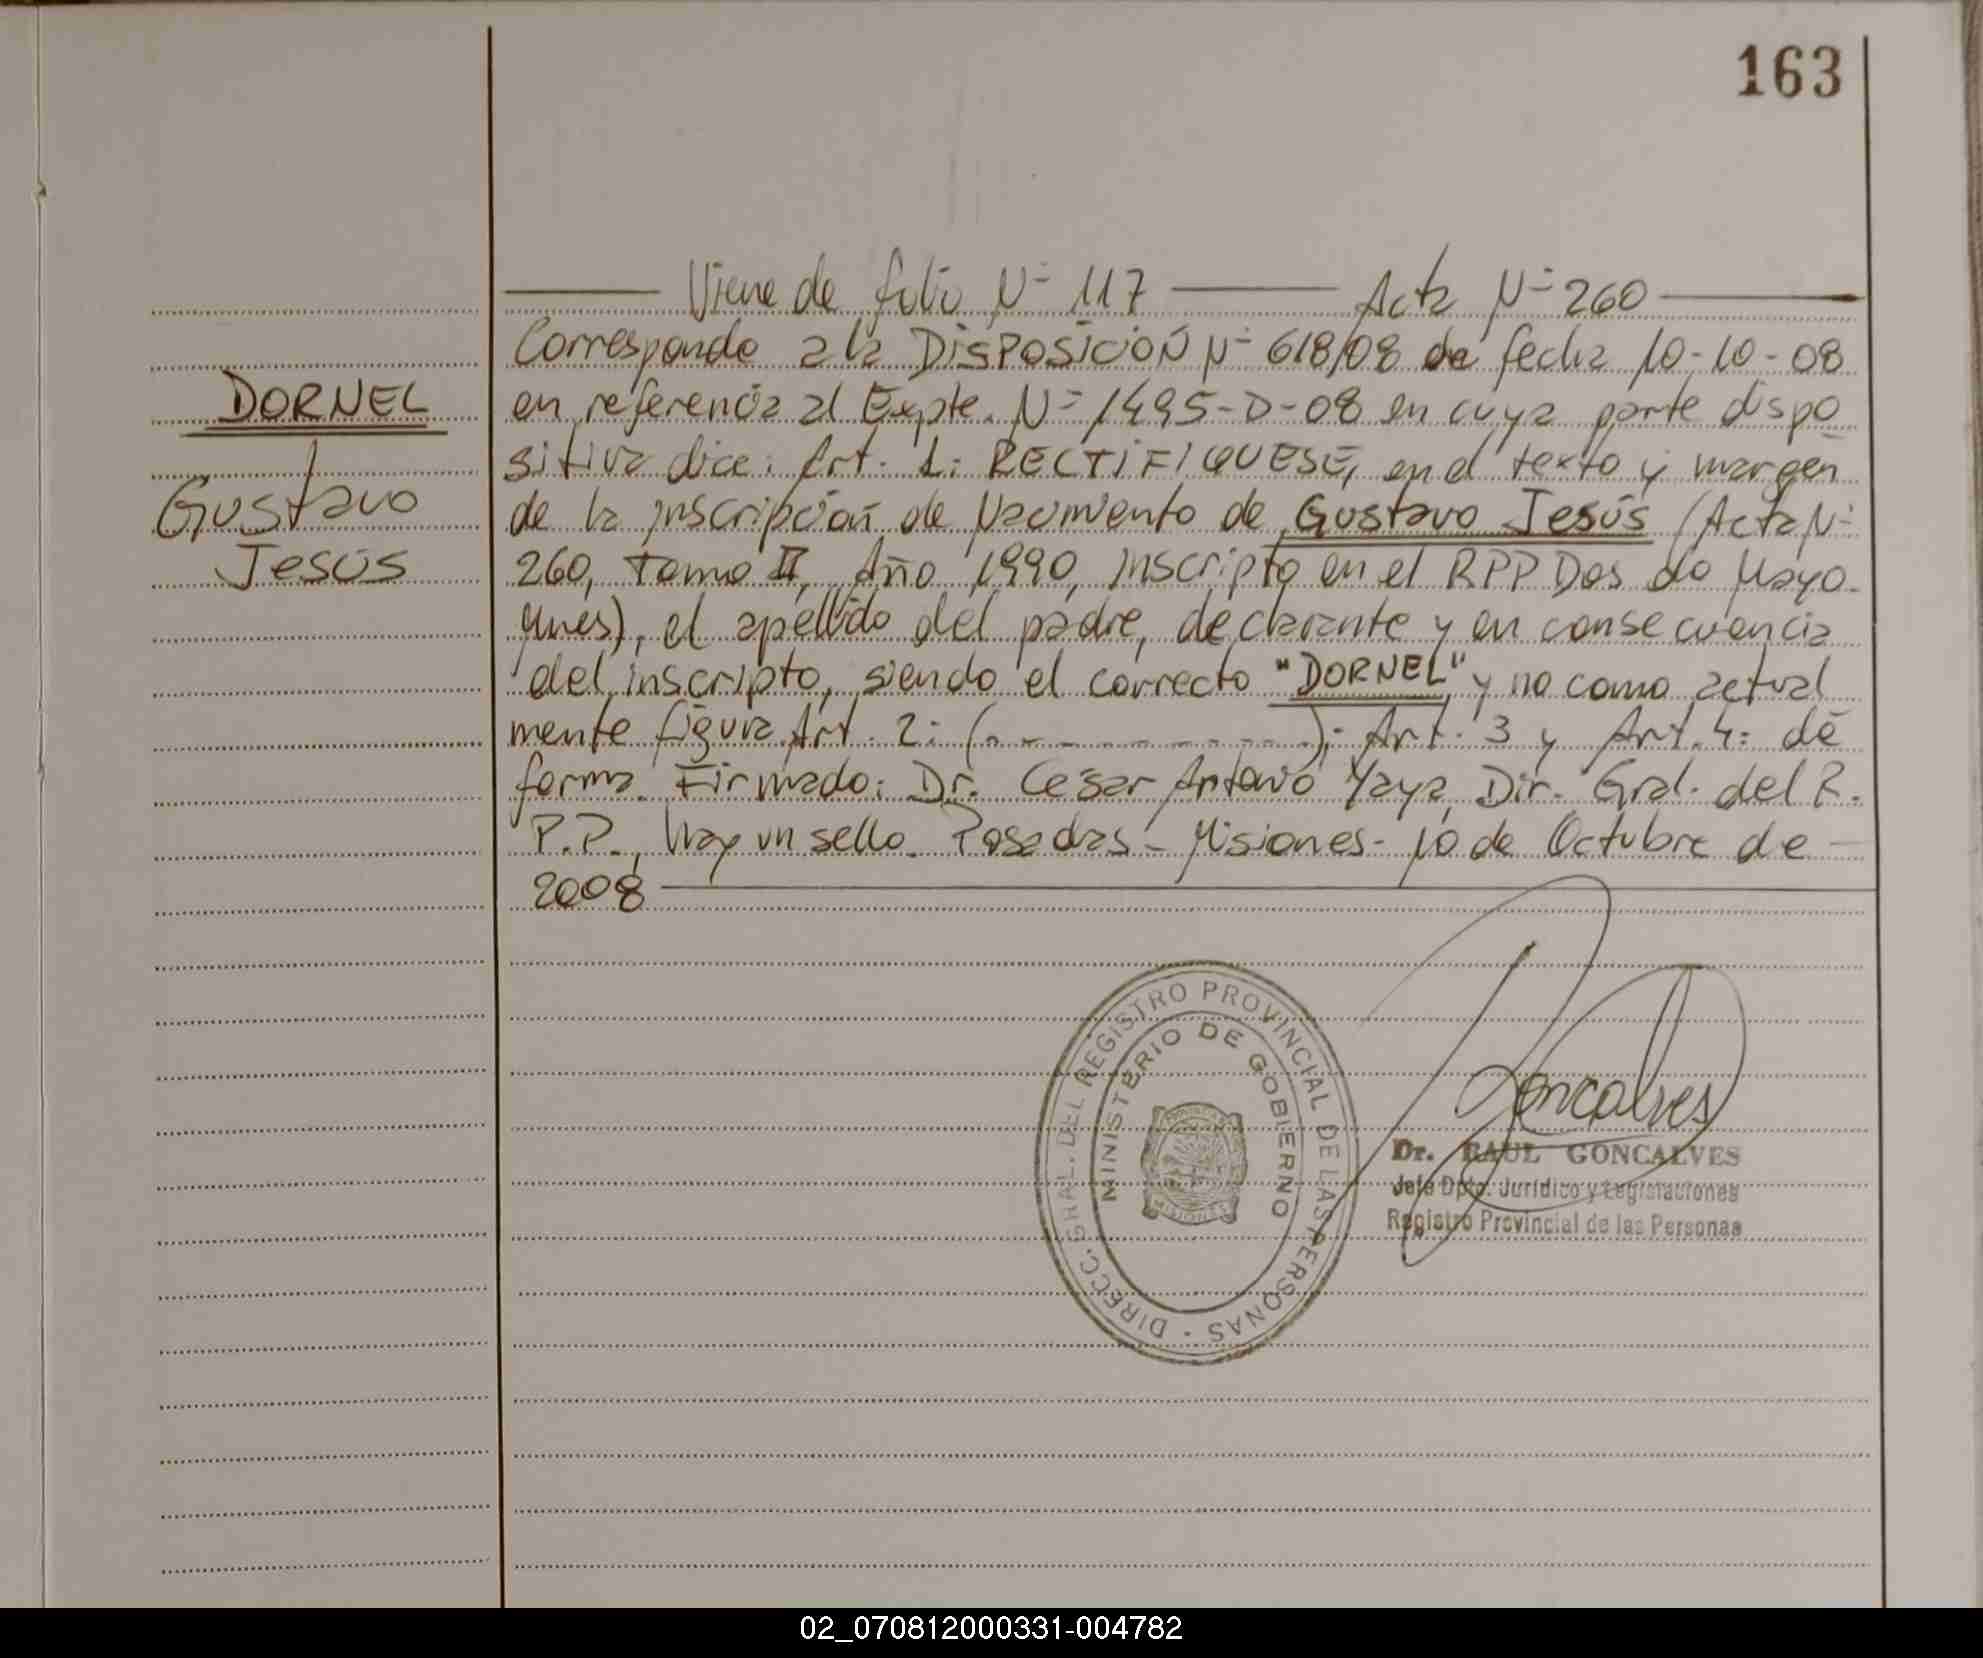 163
Viene de folio N= 117 Acta N= 260
DORNEL
Gustavo
Jesús
Corresponde a la DISPOSICIÓN N= 618/08 de fecha 10-10-08
en referencia al Expte. N= 1495-D-08 en cuya parte dispo
sitiva dice: Art. 1: RECTIFIQUESE, en el texto y margen
de la inscripción de Nacimiento de Gustavo Jesús (Acta N=
260, Tomo II, Año 1990, Inscripto en el RPP Dos de Mayo-
Mnes), el apellido del padre, declarante y en consecuencia
del inscripto, siendo el correcto "DORNEL" y no como actual
mente figura. Art. 2: (- - - - - - - - - -); Art. 3 y Art. 4: de
forma. Firmado: Dr. Cesar Antonio Yaya, Dir. Gral. del R.
P.P., hay un sello. Posadas - Misiones - 10 de Octubre de
2008
DIRECC. GRAL. DEL REGISTRO PROVINCIAL DE LAS PERSONAS
MINISTERIO DE GOBIERNO
PROVINCIA
MISIONES
Goncalves
Dr. RAUL GONCALVES
Jefe Dpto. Jurídico y Legislaciones
Registro Provincial de las Personas
02_070812000331-004782